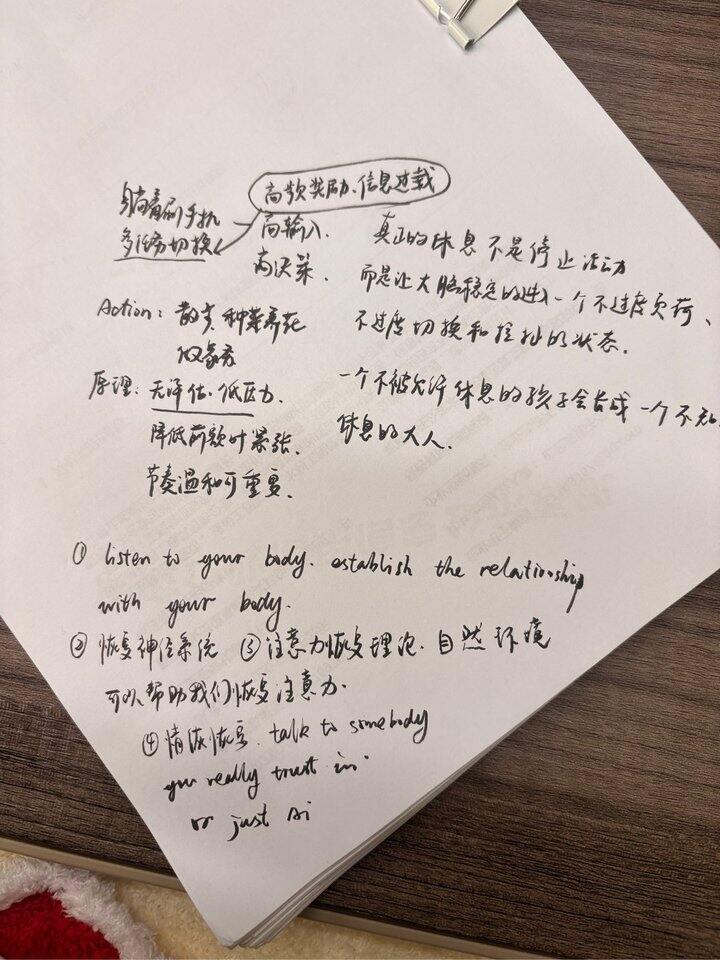 高频奖励、信息过载
躺着刷手机
多任务切换
高输入.
高决策.
真正的休息不是停止活动
而是让大脑稳定的进入一个不过度负荷、
不过度切换和拉扯的状态.
一个不被允许休息的孩子会长成一个不知
休息的大人.
Action: 散步, 种菜养花
原理: 无评估、低压力.
降低前额叶紧张.
节奏温和可重复.
① listen to your body. establish the relationship
with your body.
② 恢复神经系统 ③ 注意力恢复理论. 自然环境
可以帮助我们恢复注意力.
④ 情感恢复. talk to somebody
you really trust in.
or just Ai